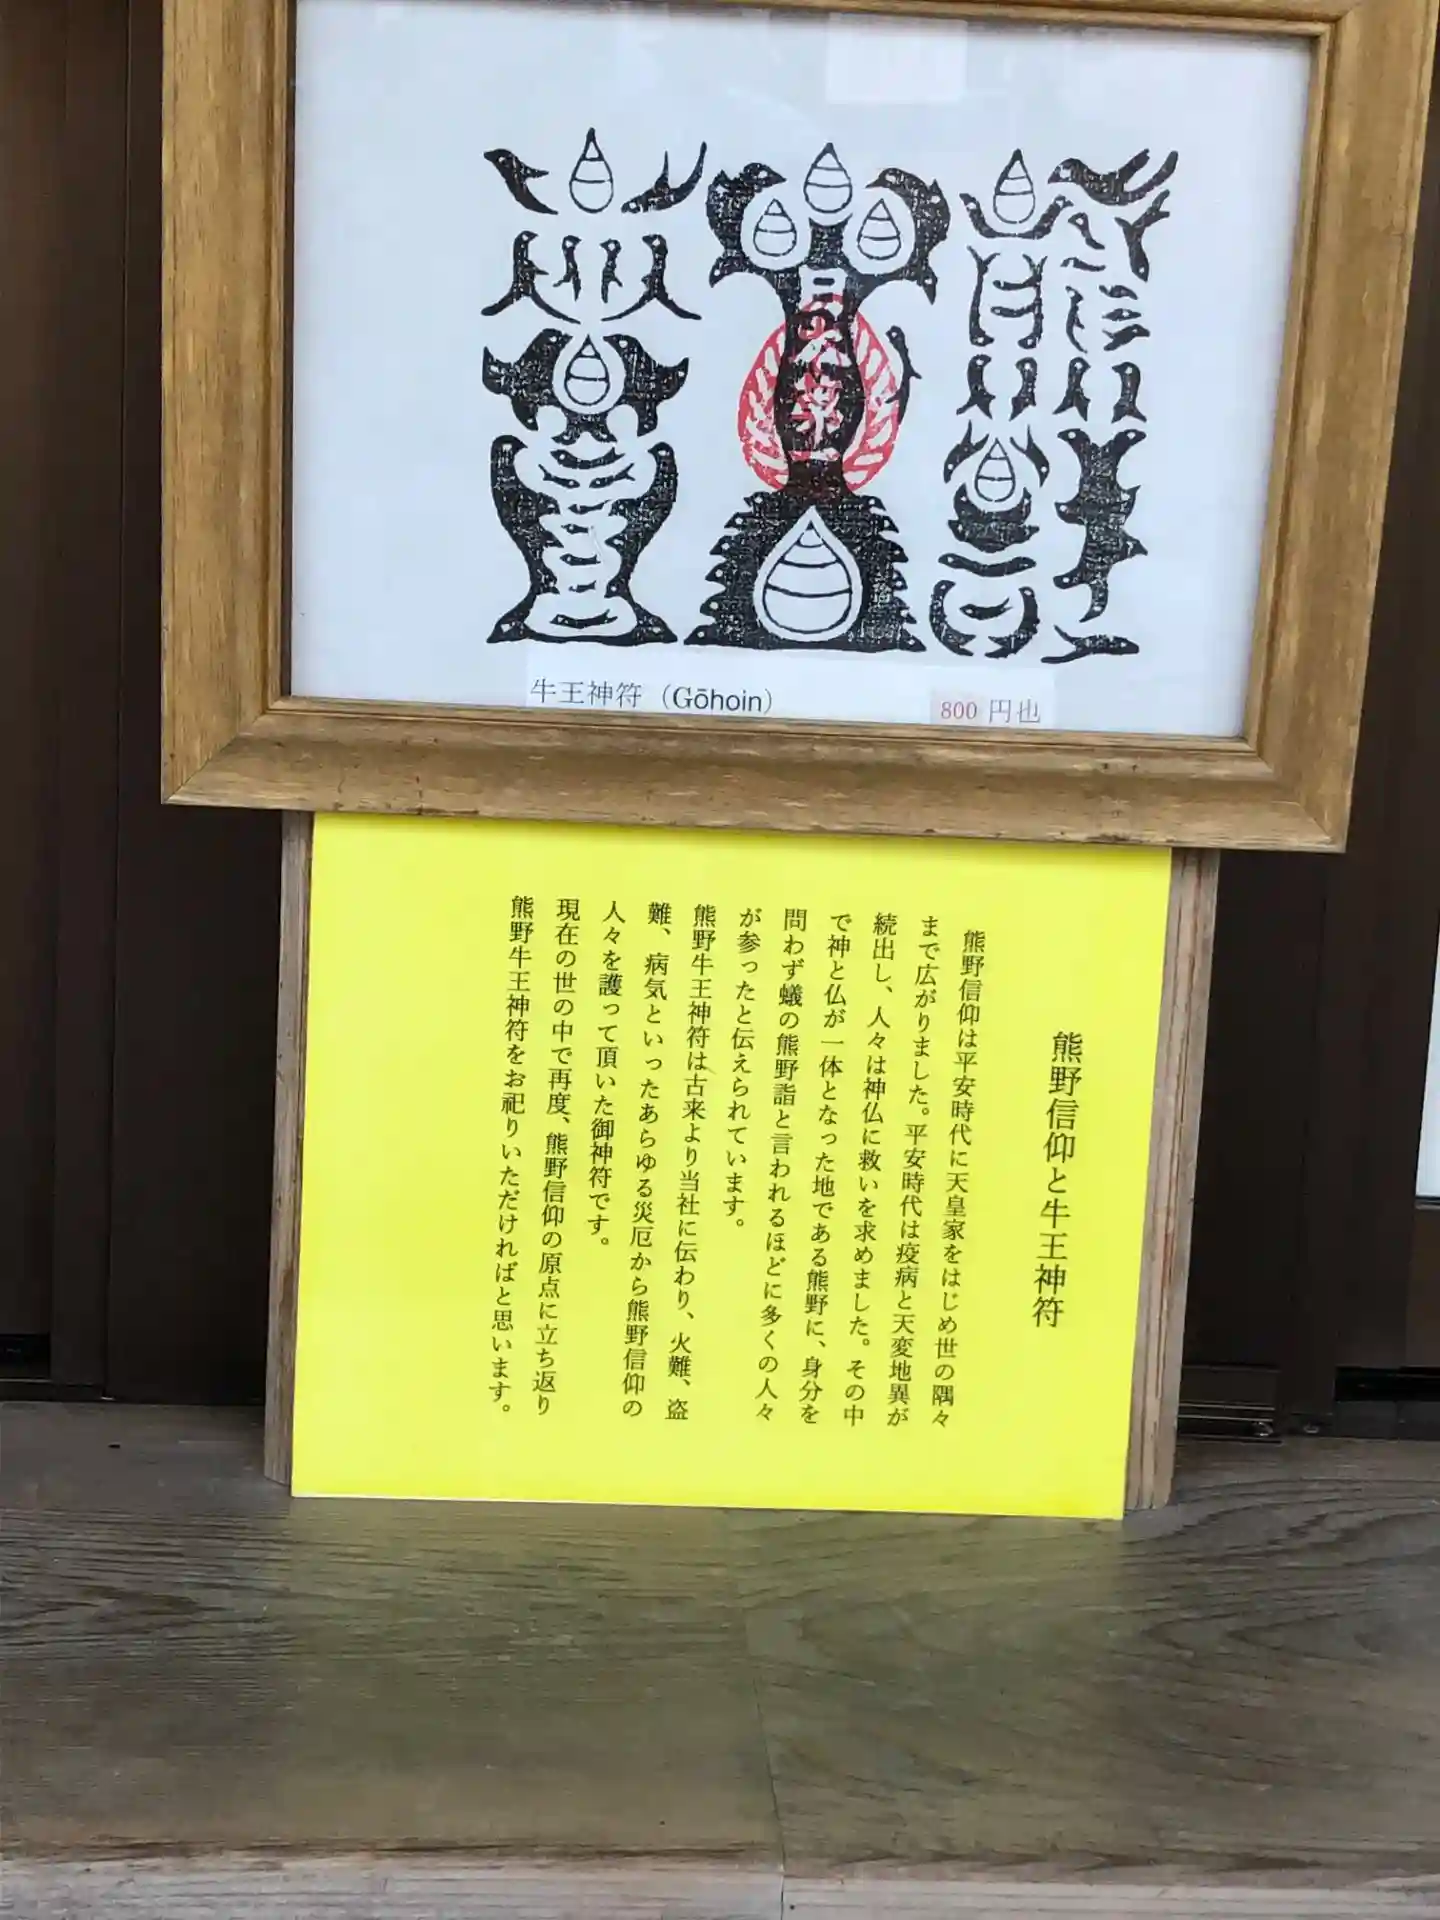 牛王神符（Gōhoin）
800 円也
熊野信仰と牛王神符
熊野信仰は平安時代に天皇家をはじめ世の隅々
まで広がりました。平安時代は疫病と天変地異が
続出し、人々は神仏に救いを求めました。その中
で神と仏が一体となった地である熊野に、身分を
問わず蟻の熊野詣と言われるほどに多くの人々
が参ったと伝えられています。
熊野牛王神符は古来より当社に伝わり、火難、盗
難、病気といったあらゆる災厄から熊野信仰の
人々を護って頂いた御神符です。
現在の世の中で再度、熊野信仰の原点に立ち返り
熊野牛王神符をお祀りいただければと思います。